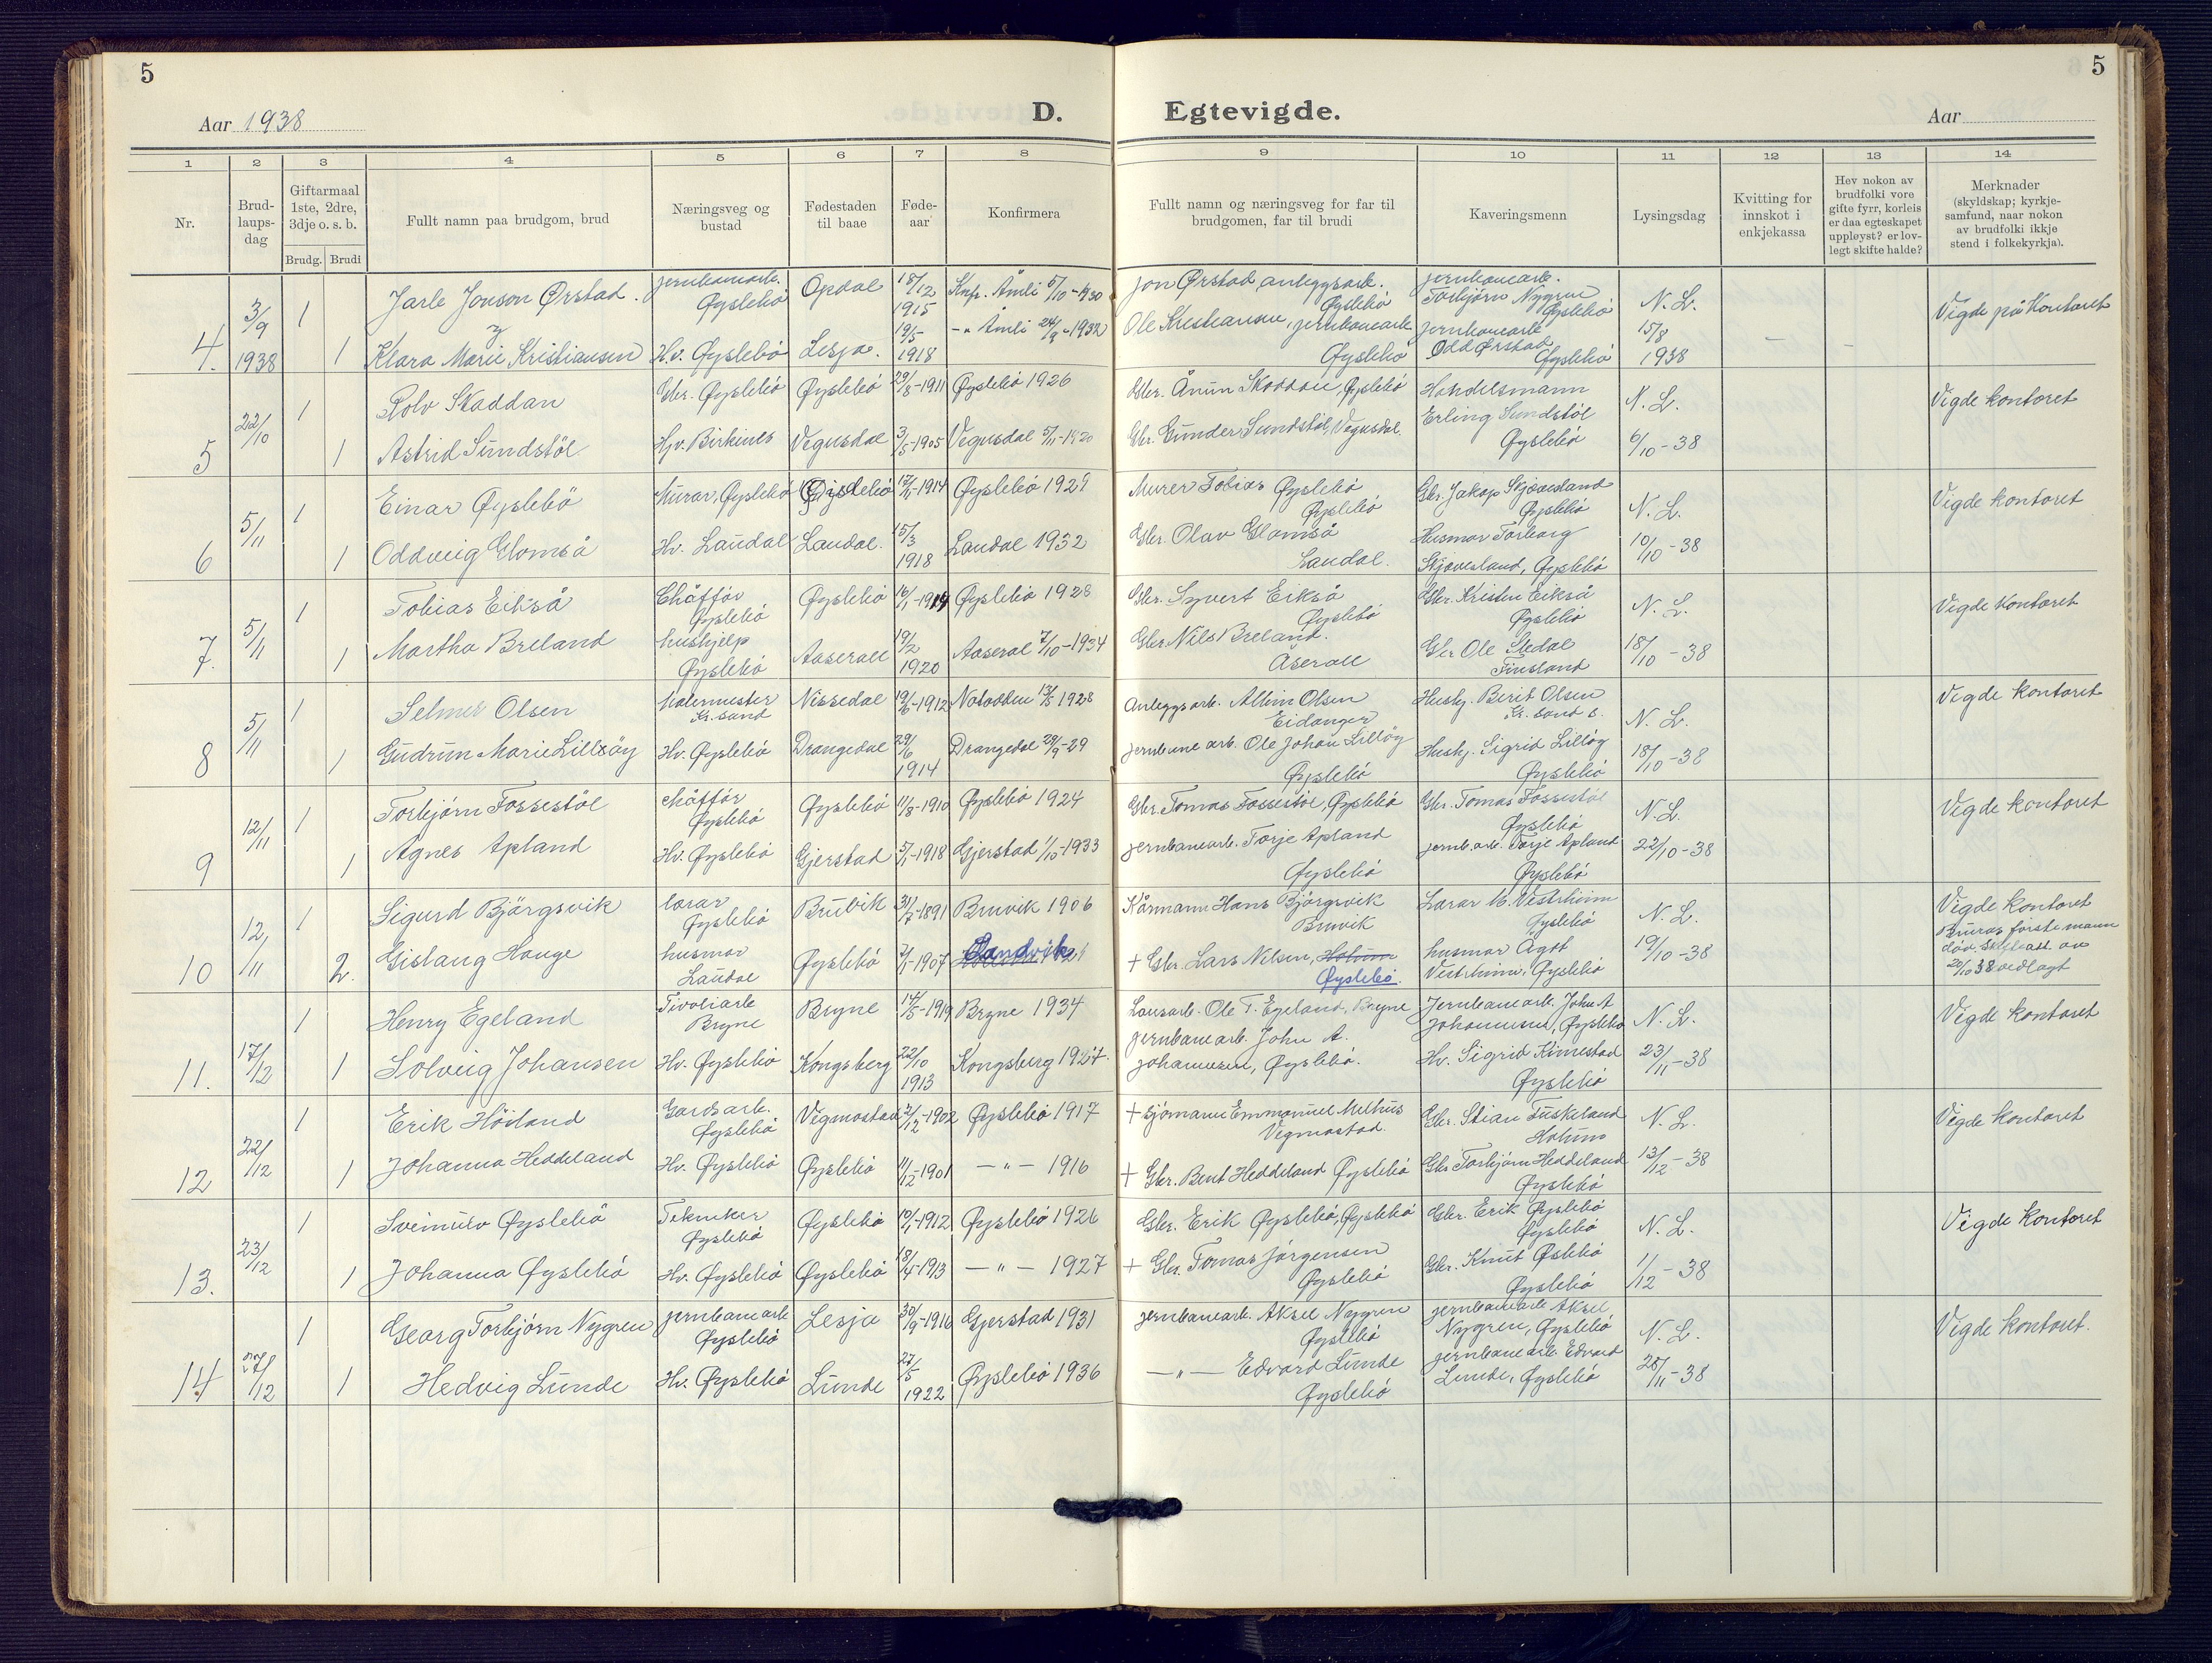 5
5
Aar 1938
D. Egtevigde.
Aar
1 2 3 4 5 6 7 8 9 10 11 12 13 14
Nr.
Brud-
laups-
dag
Giftarmaal
1ste, 2dre,
3dje o. s. b.
Brudg. Brudi
Fullt namn paa brudgom, brud
Næringsveg og
bustad
Fødestaden
til baae
Føde-
aar
Konfirmera
Fullt namn og næringsveg for far til
brudgomen, far til brudi
Kaveringsmenn
Lysingsdag
Kvitting for
innskot i
enkjekassa
Hev nokon av
brudfolki vore
gifte fyrr, korleis
er daa egteskapet
uppløyst? er lov-
legt skifte halde?
Merknader
(skyldskap; kyrkje-
samfund, naar nokon
av brudfolki ikkje
stend i folkekyrkja).
4. 3/9 1938
1 Jarle Jonson Ørstad. jernbanearb. Øyslebö Opdal 18/12 1915 Knf. Åmli 5/10-1930 Jon Ørstad, anleggsarb. Øyslebö jernbanearb. Torbjørn Nygren Øyslebö N. L. Vigde på Kontoret
1 Klara Marie Kristiansen Hv. Øyslebö Lesja. 19/5 1918 -"- Åmli 24/9-1932 Ole Kristiansen, jernbanearb. Øyslebö jernbanearb. Odd Ørstad Øyslebö 15/8 1938
5 22/10
1 Rolv Skaddan Gbr. Øyslebö Øyslebö 29/8-1911 Øyslebö 1926 Gbr. Ånun Skaddan, Øyslebö Handelsmann N. L. Vigde kontoret
1 Astrid Sundstöl Hv. Birkenes Vegusdal 3/5-1905 Vegusdal 5/11-1920 Gbr. Gunder Sundstöl, Vegusdal Erling Sundstöl Øyslebö 6/10-38
6 5/11
1 Einar Øyslebö Murar, Øyslebö Øyslebö 17/11-1914 Øyslebö 1929 Murer Tobias Øyslebö Øyslebö Gbr. Jakop Skjævesland Øyslebö N. L. Vigde kontoret
1 Oddveig Glomså Hv. Laudal Laudal. 15/3 1918 Laudal 1932 Gbr. Olav Glomså Laudal. Husmor Torborg Skjævesland, Øyslebö 10/10-38
7. 5/11
1 Tobias Eikså Chåffør Øyslebö Øyslebö 16/1-1914 Øyslebö 1928 Gbr. Syvert Eikså Øyslebö Gbr. Kristen Eikså Øyslebö N. L. Vigde kontoret
1 Martha Breland hushjelp Øyslebö Aaserall 19/2 1920 Aaseral 7/10-1934 Gbr. Nils Breland. Åserall Gbr Ole Stedal Finsland 18/10-38
8 5/11
1 Selmer Olsen Malermester Kr.sand Nissedal 19/6-1912 Notodden 13/5 1928 Anleggsarb. Albin Olsen Eidanger Hushj. Berit Olsen Kr. sand s. N. L. Vigde kontoret
1 Gudrun Marie Lillsöy Hv. Øyslebö Drangedal 29/6 1914 Drangedal 29/9-29 jernbanearb. Ole Johan Lillöy Øyslebö Hushj. Sigrid Lillöy Øyslebö 18/10-38
9 12/11
1 Torbjørn Fossestöl chåffør Øyslebö Øyslebö 11/8-1910 Øyslebö 1924 Gbr. Tomas Fossestöl, Øyslebö Gbr. Tomas Fossestöl Øyslebö N. L. Vigde kontoret
1 Agnes Apland Hv. Øyslebö Gjerstad 5/1-1918 Gjerstad 1/10-1933 jernbanearb. Torje Apland Øyslebö jernb.arb. Torje Apland Øyslebö 22/10-38
10 12/11
1 Sigurd Bjørgsvik lærar Øyslebö Bruvik 31/7-1891 Bruvik 1906 Kårmann Hans Bjørgsvik Bruvik Lærar M. Vestrheim Øyslebö N. L. Vigde kontoret
2. Gislaug Hauge husmor Laudal Øyslebö 2/1-1907 Sandvik + Gbr. Lars Nilsen, Holum Øyslebö. husmor Ågot Vestrheim, Øyslebö 19/10-38 Bruras förste mann död. Skifteatt. av 20/10 38 vedlagt
11. 17/12
1 Henry Egeland Tivoliarb Bryne Bryne 14/5-1919 Bryne 1934 Lausarb. Ole T. Egeland, Bryne Jernbanearb. John A Johannesen, Øyslebö N. L. Vigde kontoret
1 Solveig Johansen Hv. Øyslebö Kongsberg 22/10 1913 Kongsberg 1927. jernbanearb. John A. Johannesen, Øyslebö. Hv. Sigrid Kimestad Øyslebö 23/11-38
12 22/12
1 Erik Höiland Gardsarb. Øyslebö Vegmostad 2/12-1902 Øyslebö 1917 + Sjömann Emmanuel Melhus Vegmostad. Gbr. Stian Tuskeland Holum N. L. Vigde kontoret
1 Johanna Heddeland Hv. Øyslebö Øyslebö 11/12-1901 -"- 1916 + Gbr. Bent Heddeland Øyslebö Gbr Torbjørn Heddeland Øyslebö 13/12-38
13. 23/12
1 Sveinulv Øyslebö Tekniker Øyslebö Øyslebö 10/1-1912 Øyslebö 1926 Gbr. Erik Øyslebö, Øyslebö Gbr. Erik Øyslebö Øyslebö N. L. Vigde kontoret
1 Johanna Øyslebö Hv. Øyslebö Øyslebö 18/4-1913 -"- 1927 + Gbr. Tomas Jørgensen Øyslebö Gbr. Knut Øslebö Øyslebö 1/12-38
14. 27/12
1 Georg Torbjørn Nygren jernbanearb Øyslebö Lesja 30/9-1916 Gjerstad 1931 jernbanearb. Aksel Nygren Øyslebö jernbanearb Aksel, Nygren, Øyslebö N. L. Vigde kontoret.
1 Hedvig Lunde Hv. Øyslebö Lunde 27/5 1922 Øyslebö 1936 -"- Edvard Lunde Øyslebö jernbanearb. Edvard Lunde, Øyslebö 26/11-38